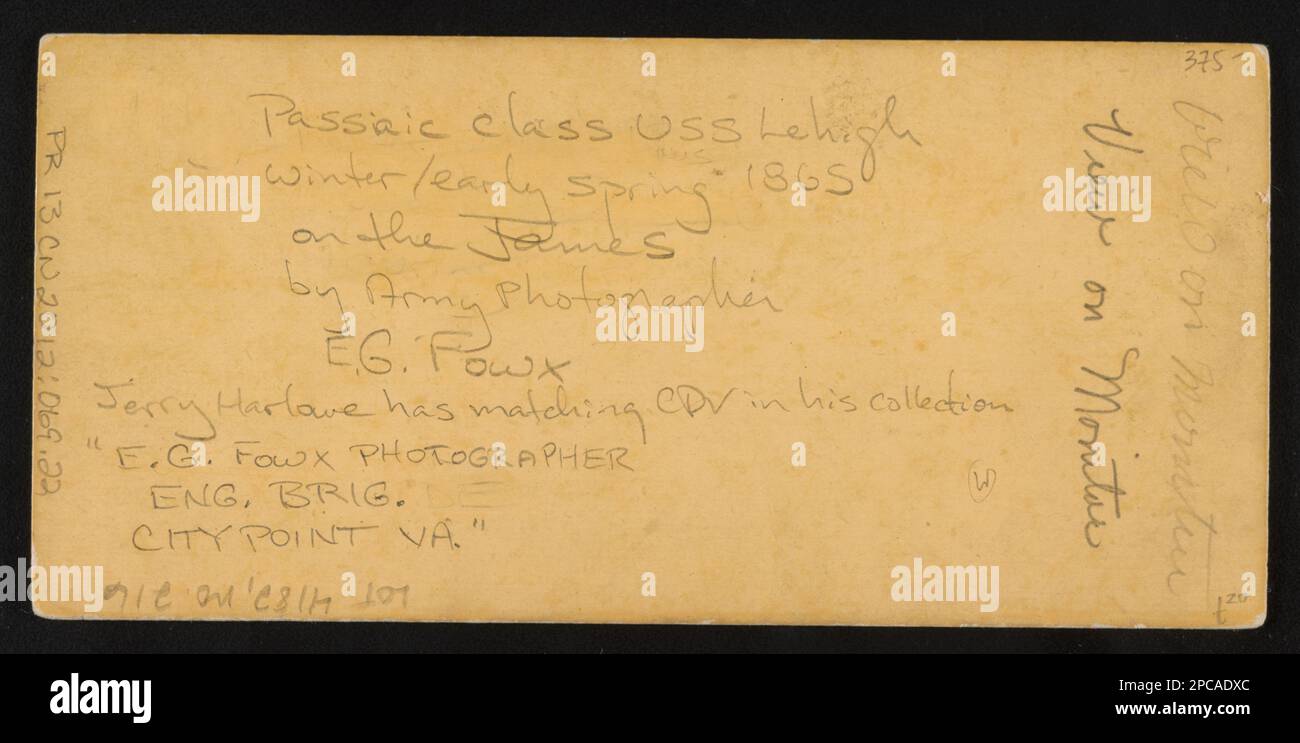 375-
Passaic class USS Lehigh
winter/early spring 1865
on the James
by Army Photographer
E.G. Fowx
Jerry Harlowe has matching CDV in his collection
"E.G. FOWX PHOTOGRAPHER
ENG. BRIG. DE
CITY POINT VA."
LOT 4182, no. 216
PR 13 CN 2012:069.22
View on Monitor
View on Monitor
W
alamy
Image ID: 2PCADXC
www.alamy.com